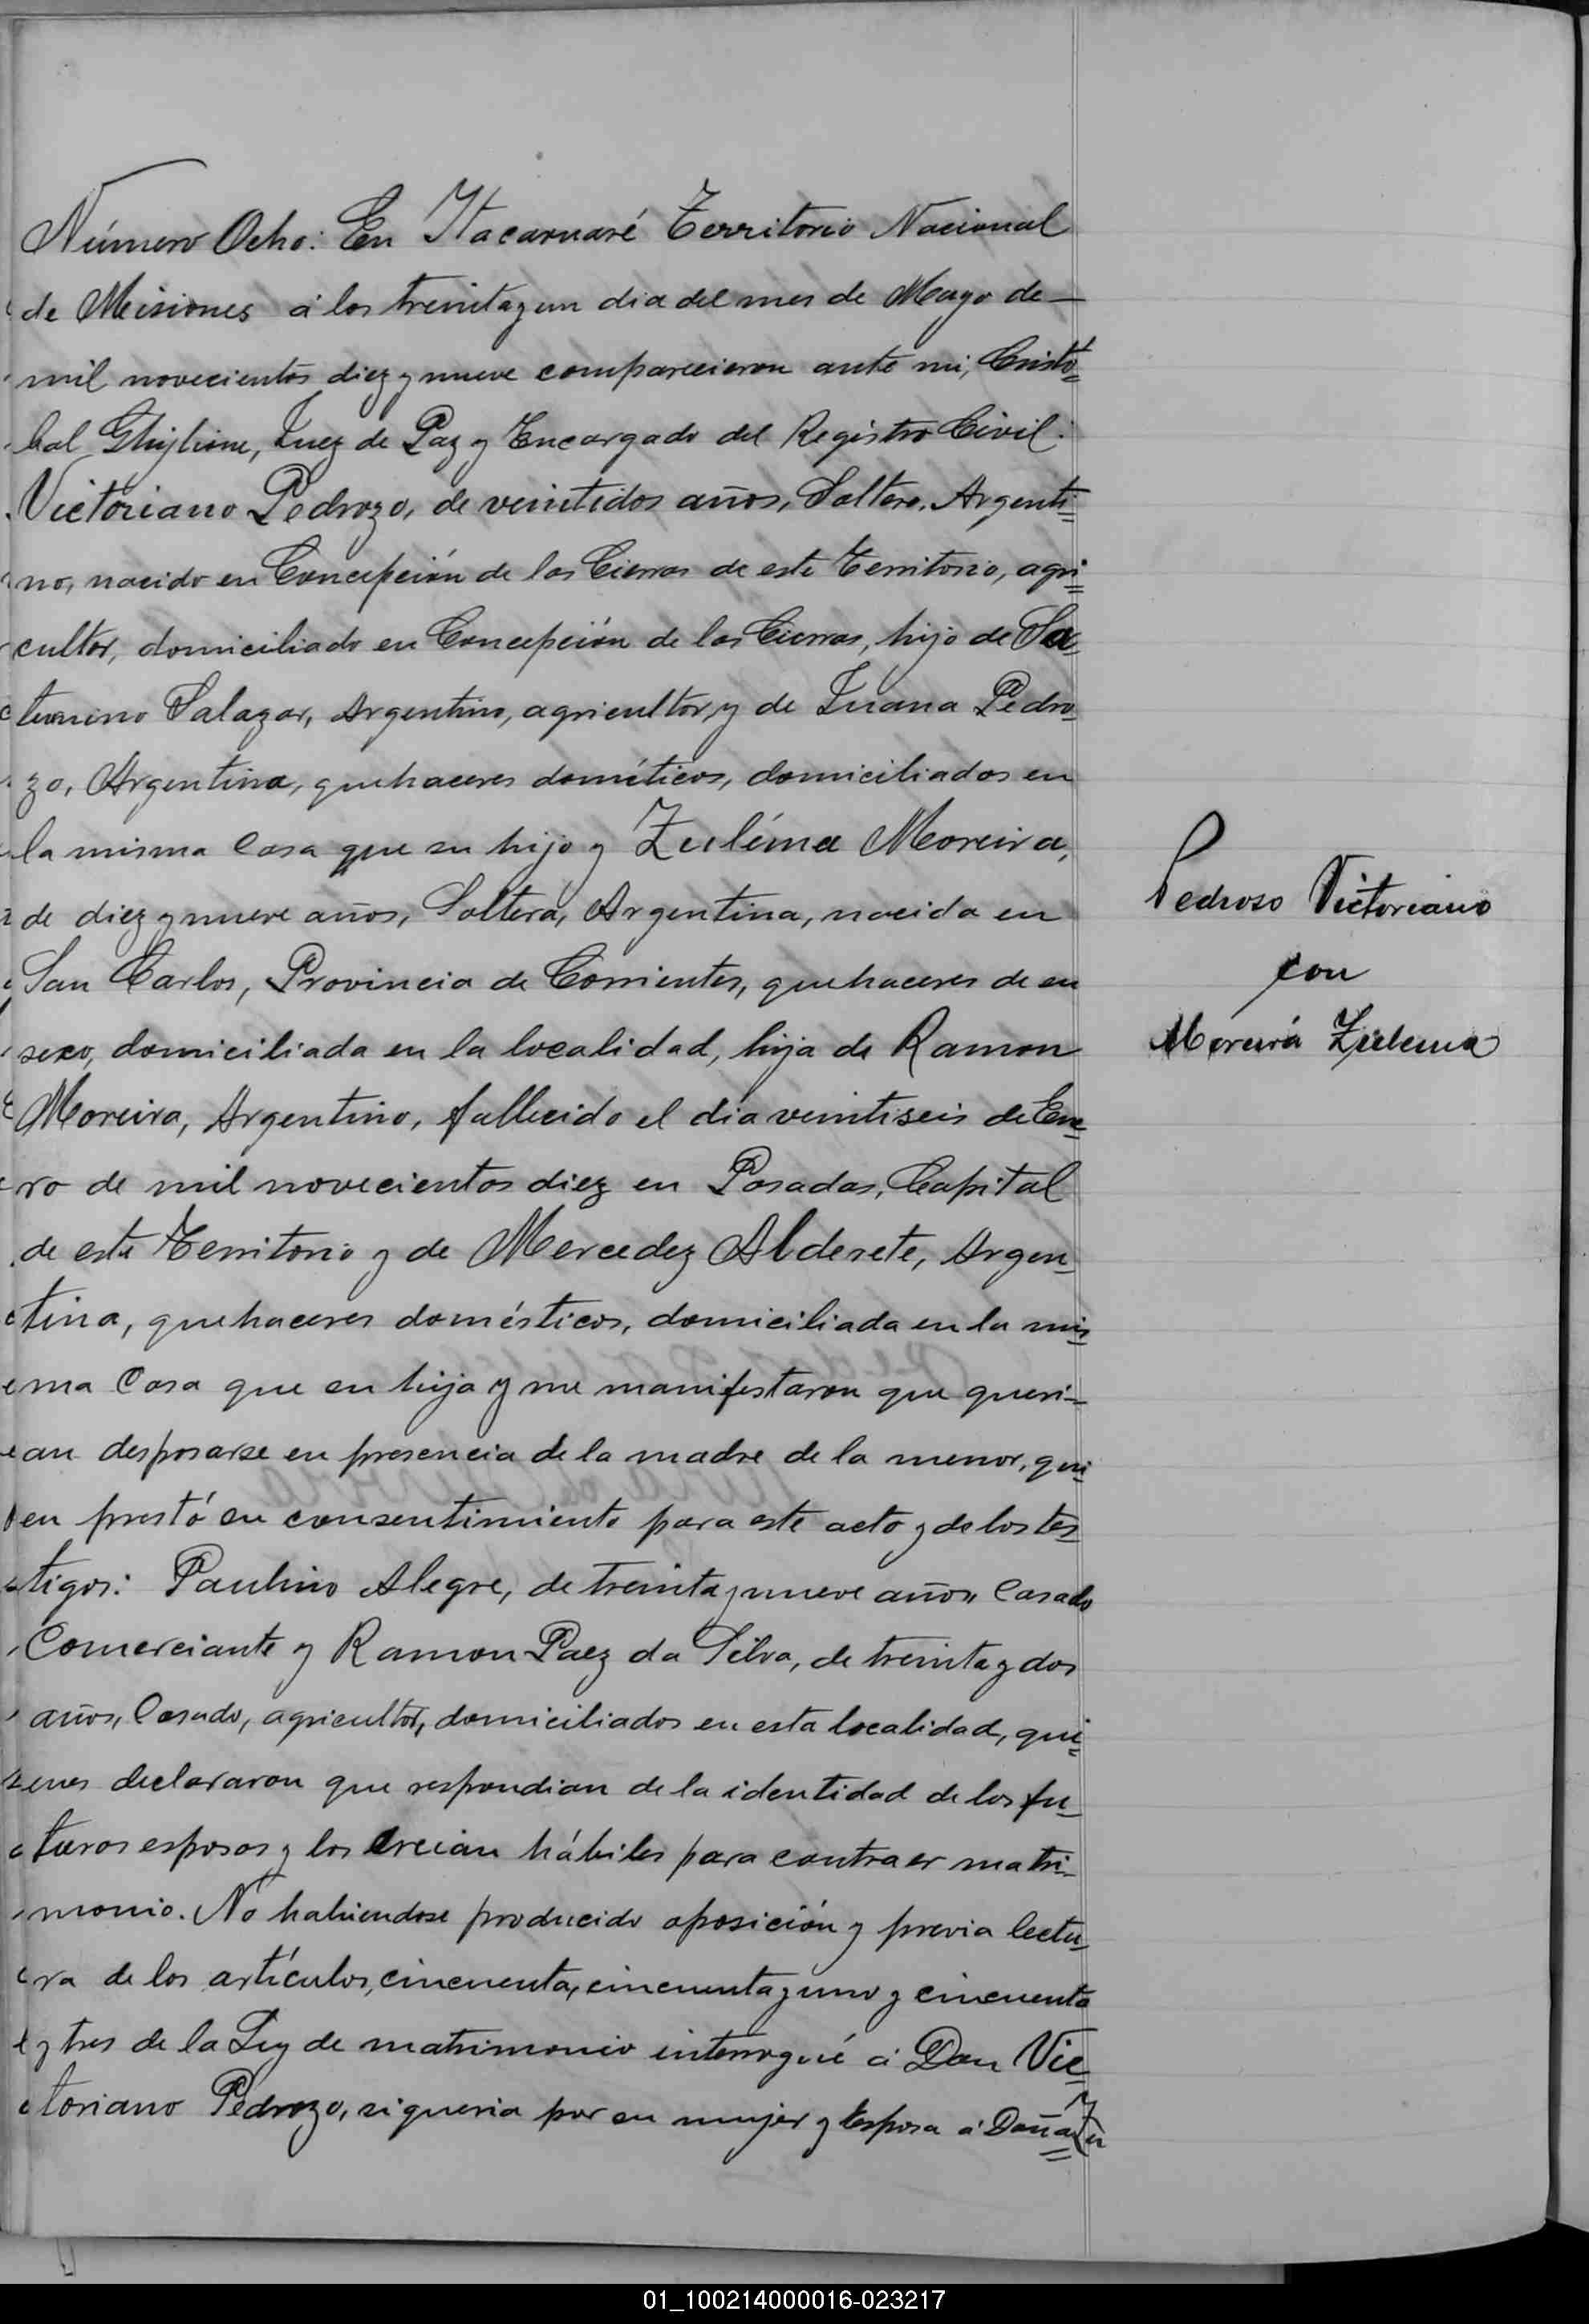 Número Ocho: En Itacaruaré Territorio Nacional
de Misiones á los treinta y un dia del mes de Mayo de
mil novecientos diez y nueve comparecieron ante mi, Cristó=
bal Ghiglione, Juez de Paz y Encargado del Registro Civil:
Victoriano Pedrozo, de veintidos años, Soltero, Argenti=
no, nacido en Concepción de las Cierras de este Territorio, agri=
cultor, domiciliado en Concepción de las Cierras, hijo de Sa=
turnino Salazar, Argentino, agricultor, y de Juana Pedro=
zo, Argentina, quehaceres dométicos, domiciliados en
la misma Casa que su hijo y Zuléma Moreira,
de diez y nueve años, Soltera, Argentina, nacida en
San Carlos, Provincia de Corrientes, quehaceres de su
sexo, domiciliada en la localidad, hija de Ramon
Moreira, Argentino, fallecido el dia veintiseis de Ene=
ro de mil novecientos diez en Posadas, Capital
de este Territorio y de Mercedez Alderete, Argen=
tina, quehaceres domésticos, domiciliada en la mis=
ma Casa que su hija y me manifestaron que queri=
an desposarse en presencia de la madre de la menor, qui=
en prestó su consentimiento para este acto y de los tes=
tigos: Paulino Alegre, de treinta y nueve años, Casado
Comerciante y Ramon Paez da Silva, de treinta y dos
años, Casado, agricultor, domiciliados en esta localidad, qui=
enes declararon que respondian de la identidad de los fu=
turos esposos y los creian hábiles para contraer matri=
monio. No habiendose producido oposición y previa lectu=
ra de los artículos, cincuenta, cincuenta y uno y cincuenta
y tres de la Ley de matrimonio interrogué á Don Vic=
toriano Pedrozo, si queria por su mujer y Esposa á Doña Zu=
Pedroso Victoriano
con
Moreira Zulema
01_100214000016-023217